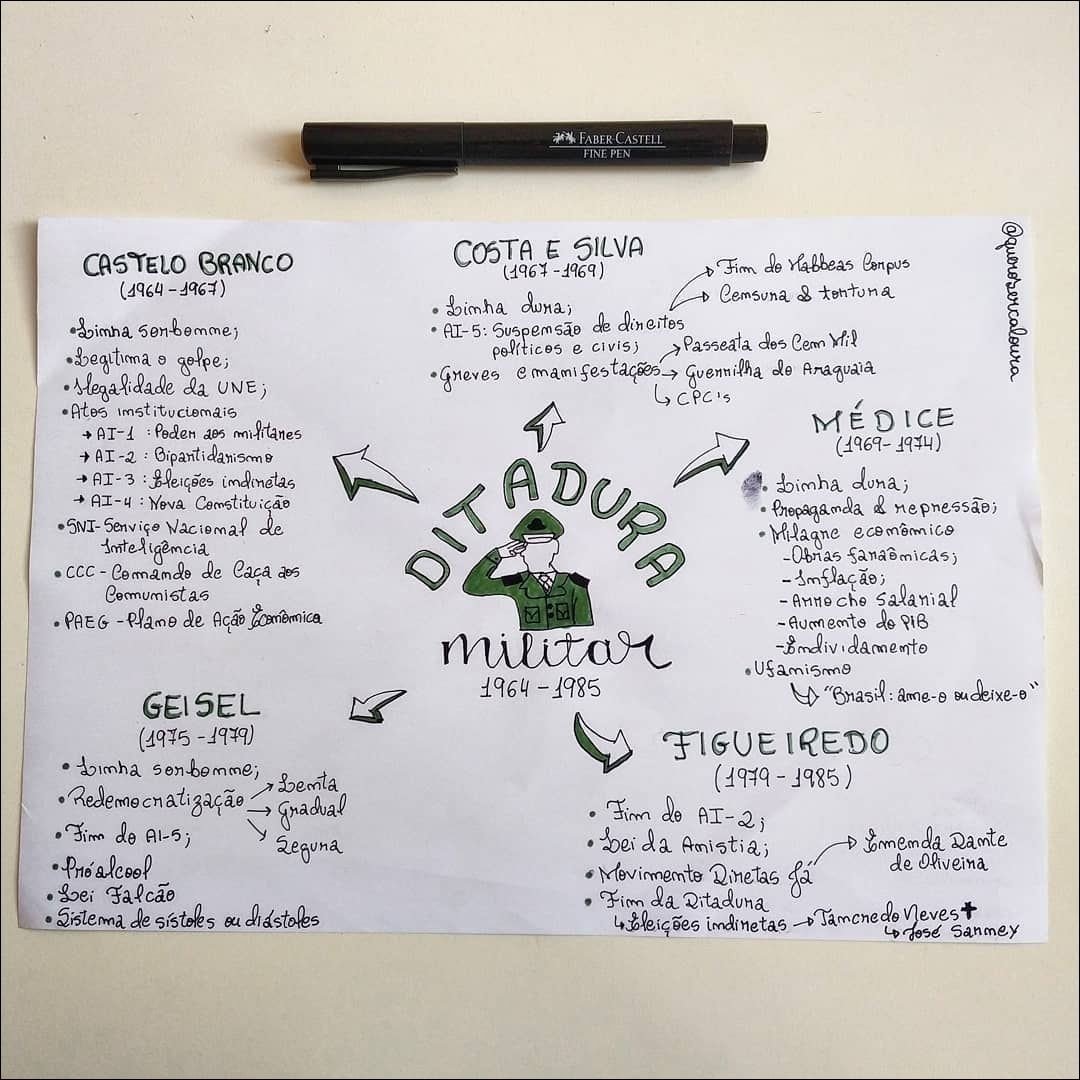 FABER-CASTELL
FINE PEN
@querosercaloura
CASTELO BRANCO
(1964-1967)
• Linha sorbonne;
• Legitima o golpe;
• Ilegalidade da UNE;
• Atos institucionais
→ AI-1 : Poder aos militares
→ AI-2 : Bipartidarismo
→ AI-3 : Eleições indiretas
→ AI-4 : Nova Constituição
• SNI- Serviço Nacional de
Inteligência
• CCC - Comando de Caça aos
Comunistas
• PAEG - Plano de Ação Econômica
COSTA E SILVA
(1967-1969)
• Linha dura;
• AI-5: Suspensão de direitos
políticos e civis;
→ Fim do Habbeas Corpus
→ Censura & tortura
• Greves e manifestações
→ Passeata dos Cem Mil
→ Guerrilha do Araguaia
↳ CPC's
MÉDICE
(1969-1974)
• Linha dura;
• Propaganda & repressão;
• Milagre econômico
- Obras faraônicas;
- Inflação;
- Arrocho Salarial
- Aumento do PIB
- Endividamento
• Ufanismo
↳ "Brasil: ame-o ou deixe-o"
DITADURA
militar
1964-1985
GEISEL
(1975-1979)
• Linha sorbonne;
• Redemocratização
→ Lenta
→ Gradual
→ Segura
• Fim do AI-5;
• Próalcool
• Lei Falcão
• Sistema de sístoles ou diástoles
FIGUEIREDO
(1979-1985)
• Fim do AI-2;
• Lei da Anistia;
• Movimento Diretas Já
→ Emenda Dante
de Oliveira
• Fim da Ditadura
↳ Eleições indiretas → Tancredo Neves ✝
↳ José Sarney